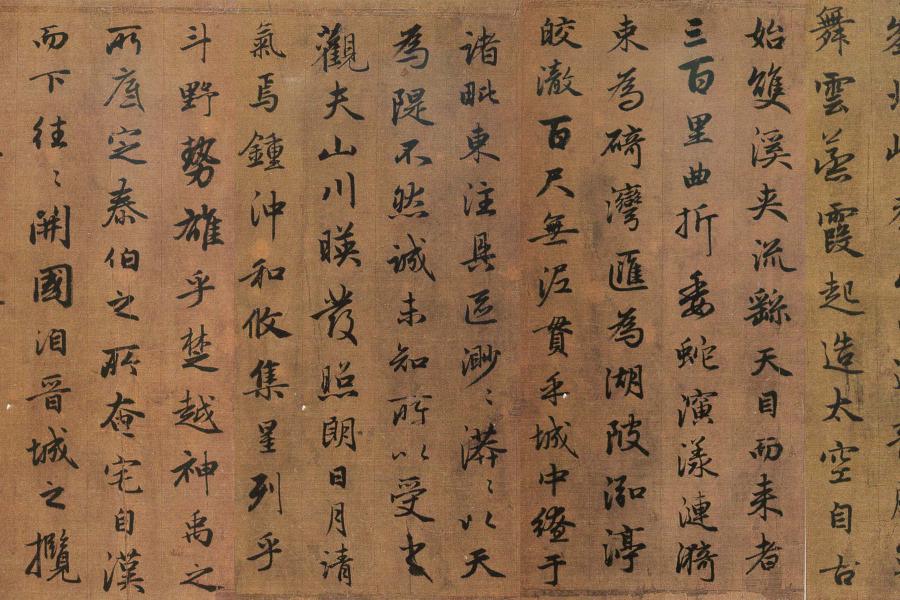 舞雲蒸霞起造太空自古
始雙溪夾流繇天目而来者
三百里曲折委蛇演漾漣漪
束為碕灣匯為湖陂泓渟
皎澈百尺無泥貫乎城中繚于
諸毗東注具區渺〻漭〻以天
為隄不然誠未知所以受之
觀夫山川暎發照朗日月清
氣焉鍾沖和攸集星列乎
斗野勢雄乎楚越神禹之
所底定泰伯之所奄宅自漢
而下往〻開國洎晉城之攬